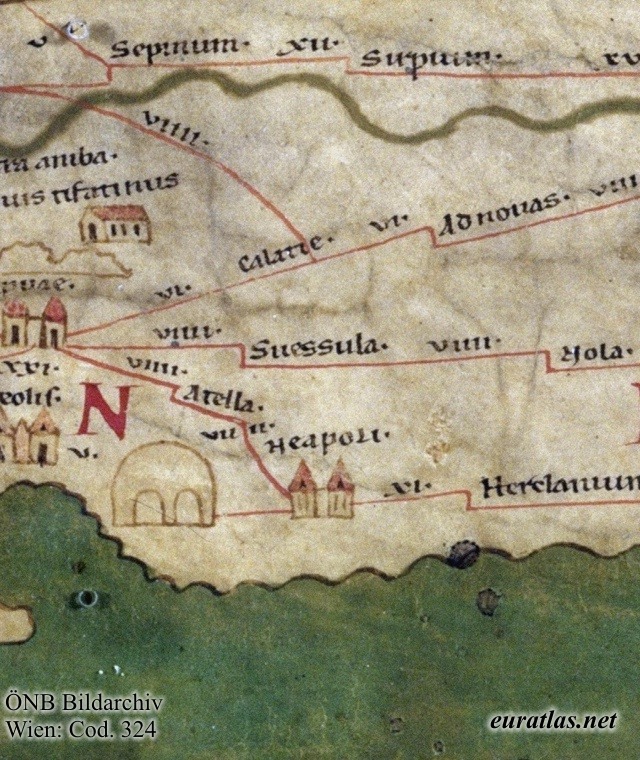 v
Sepinum. xii. Sirpium. xv
viiii.
ra aniba.
uis tifatinus
Calatie. vi. Ad novas. viiii
puae.
vi.
viiii. Suessula. viiii. Nola.
xxi. viiii.
eolis. N Atella.
v. Neapoli.
xi. Herclanium
ÖNB Bildarchiv
Wien: Cod. 324
euratlas.net